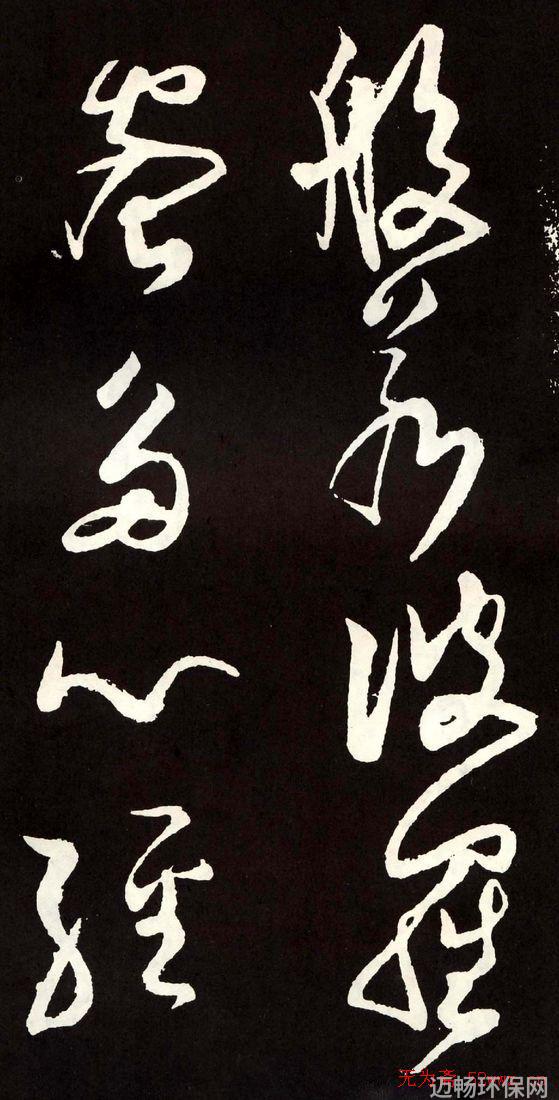 般若波羅
蜜多心經
无为斋
迈畅环保网